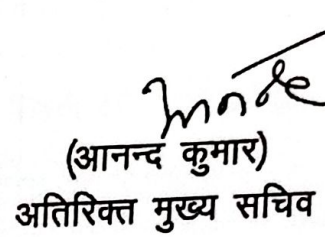 (आनन्द कुमार)
अतिरिक्त मुख्य सचिव